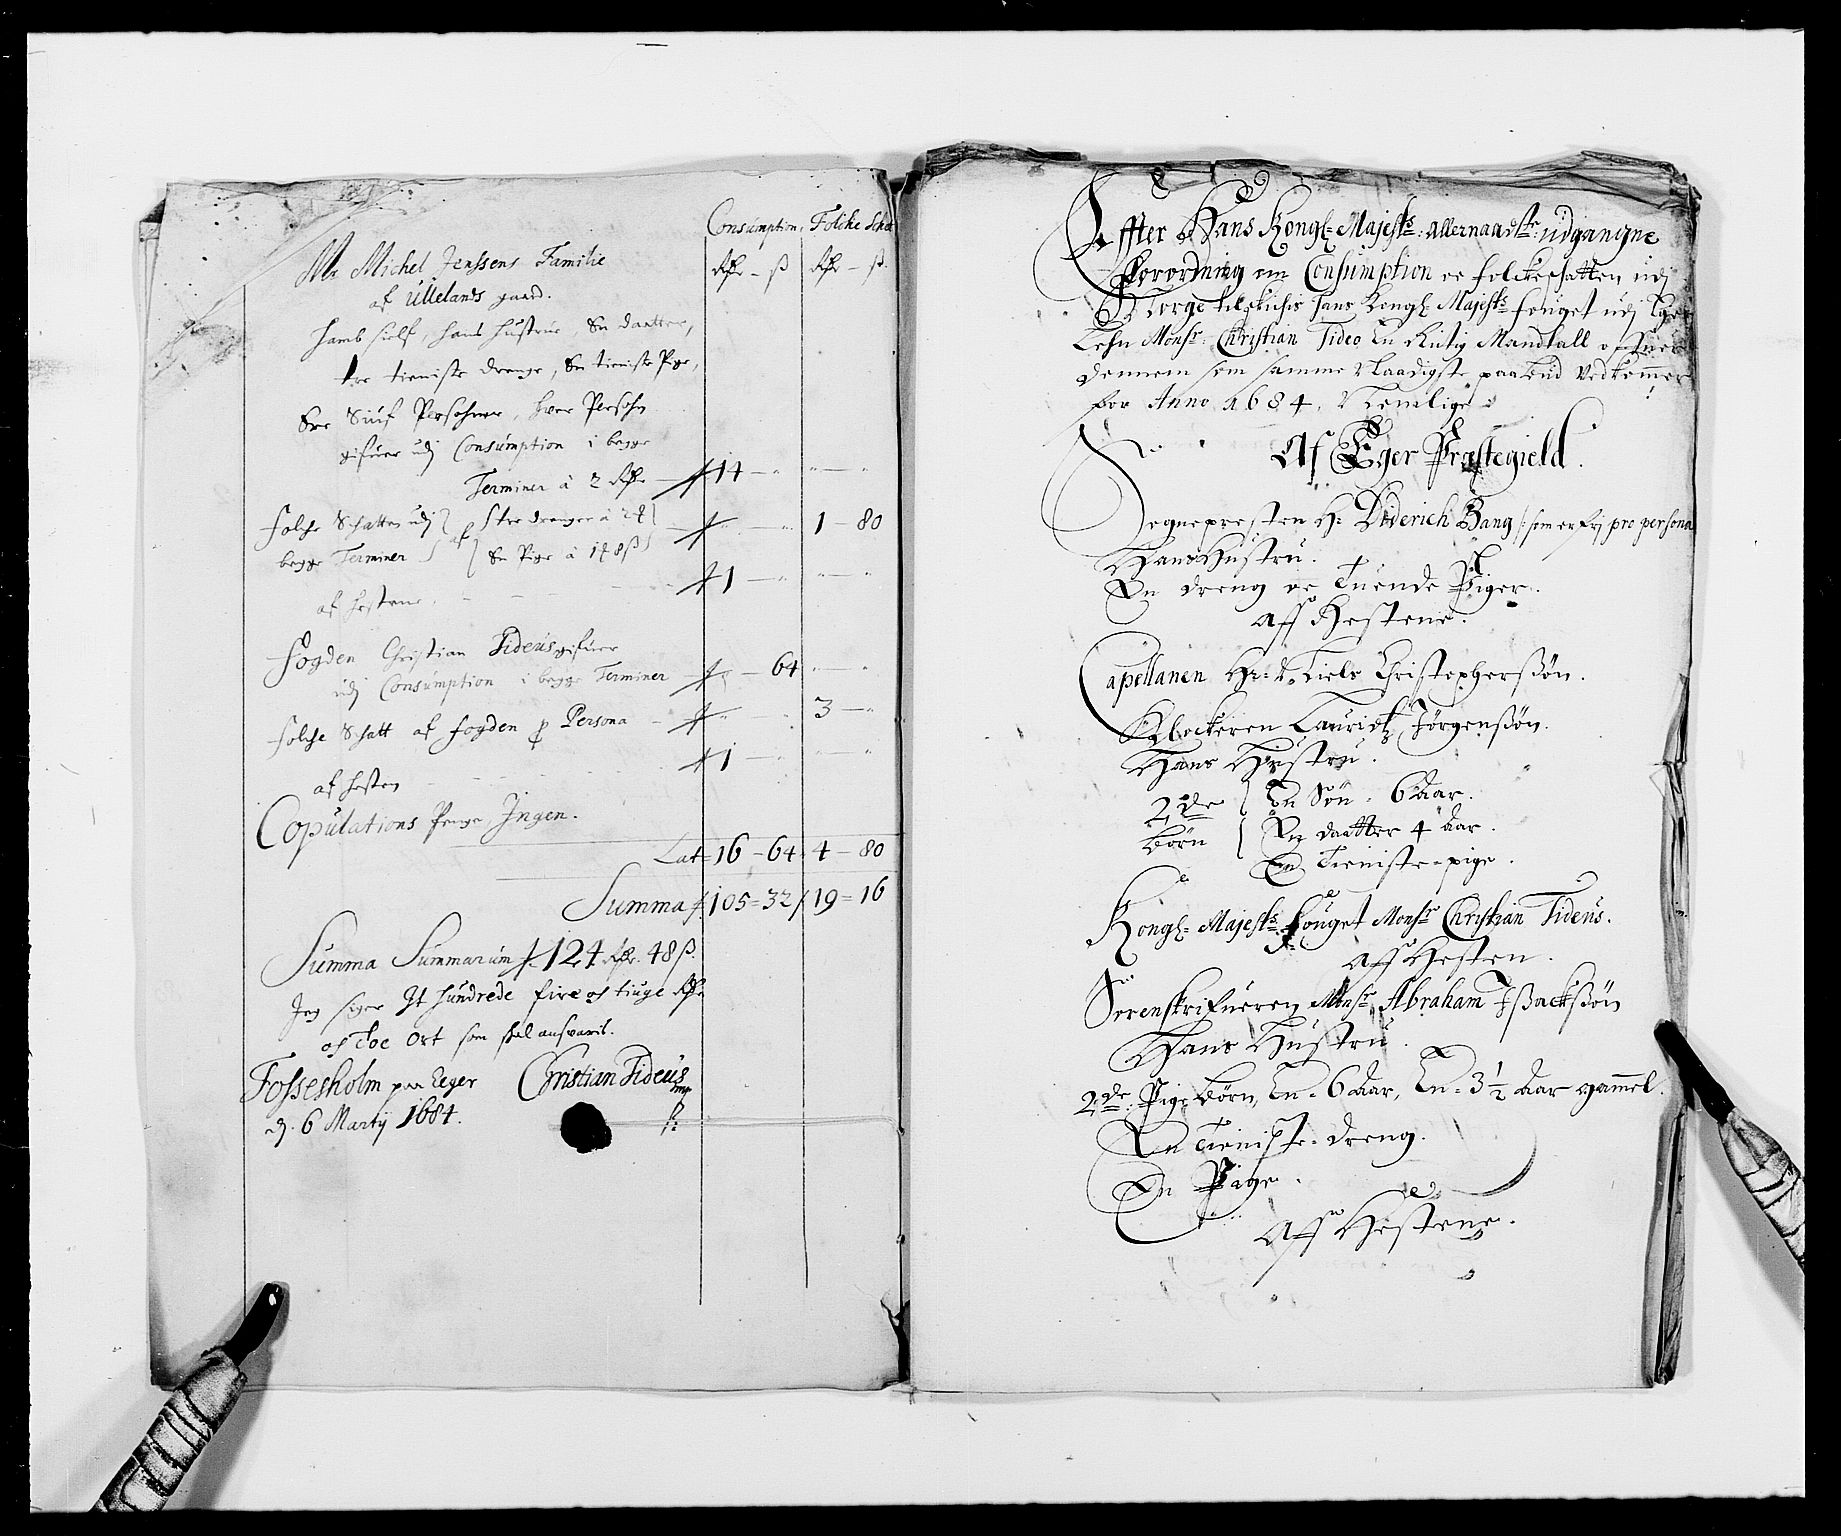 Consumption. Folcke Schat
Rdr – ß Rdr – ß.
Mr Michel Jenssens Familie
af Ullelands gaard.
hamb sielf, hans hustrue, En daatter,
tre tieniste drenge, En tieniste Pige,
Ere Siuf Persohner, hver Persohn
gifuer udj Consumption i begge
Terminer â 2 Rdr — 14 — „ „ — „
folche Schatten udj af 3tre drenger â 2 — „ 1 — 80
begge Terminer En Pige â 1 8ß
af hestene — 1 — „ „ — „
Fogden Christian Tideus gifuer
udj Consumption i begge Terminer — „ — 64 „ — „
folche Schatt af fogden p Persona — „ „ 3 — „
af hesten — 1 — „ „ — „
Copulations Penge Ingen.
Lat= 16 – 64. 4 – 80
Summa 105 = 32 / 19 = 16
Summa Summarum 124 Rdr. 48 ß.
Jeg siger It hundrede fire og tiuge Rdr
og toe ort som skal ansvaris.
Fossesholm paa Eger Christian Tideus
d. 6 Martij 1684. mp
Effter Hans Kongl: Majests: allernaadste: udgangne
Forordning om Consumption oc folckeskatten udj
Norge tilskichis hans Kongl: Majests fouget udj Eger
Lehn Monsr: Christian Tideo En Rictig Mandtall offuer
dennem som samme Naadigste paabud Vedkommer
for Anno 1684, Nemlige:
Af Eger Præstegield.
Sognepresten Hr Diderich Bang /: som er frj pro persona
Hans Hustru.
En dreng oc Tuende Piger.
Aff Hestene.
Capellanen Hr: Niels Christopherssøn.
Klockeren Lauridtz Jørgenssøn.
Hans Hustru.
2de En Søn - 6 Aar.
Børn En daatter 4 Aar.
En Tieniste-pige.
Kongl: Majests Fouget Monsr Christian Tideus.
Aff Hesten.
Sorenskrifueren Monsr Abraham Issackssøn
Hans Hustru.
2de: Pige børn, En - 6 Aar, En - 3 1/2 Aar gammel.
En Tieniste-dreng.
En Pige.
Aff Hestene.